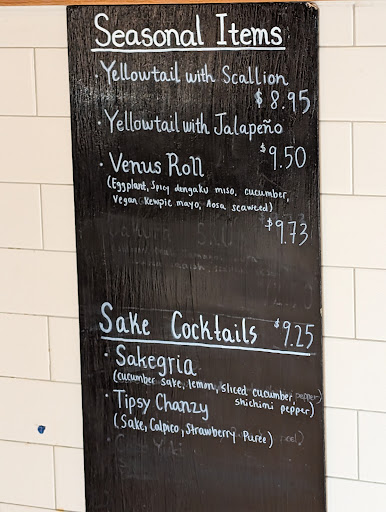 Seasonal Items
· Yellowtail with Scallion
$8.95
· Yellowtail with Jalapeño
$9.50
· Venus Roll
(Eggplant, Spicy dengaku miso, cucumber,
Vegan Kewpie mayo, Aosa seaweed)
$9.73
Sake Cocktails $9.25
· Sakegria
(cucumber sake, lemon, sliced cucumber pepper)
shichimi pepper)
· Tipsy Chanzy
(Sake, Calpico, Strawberry Purée)